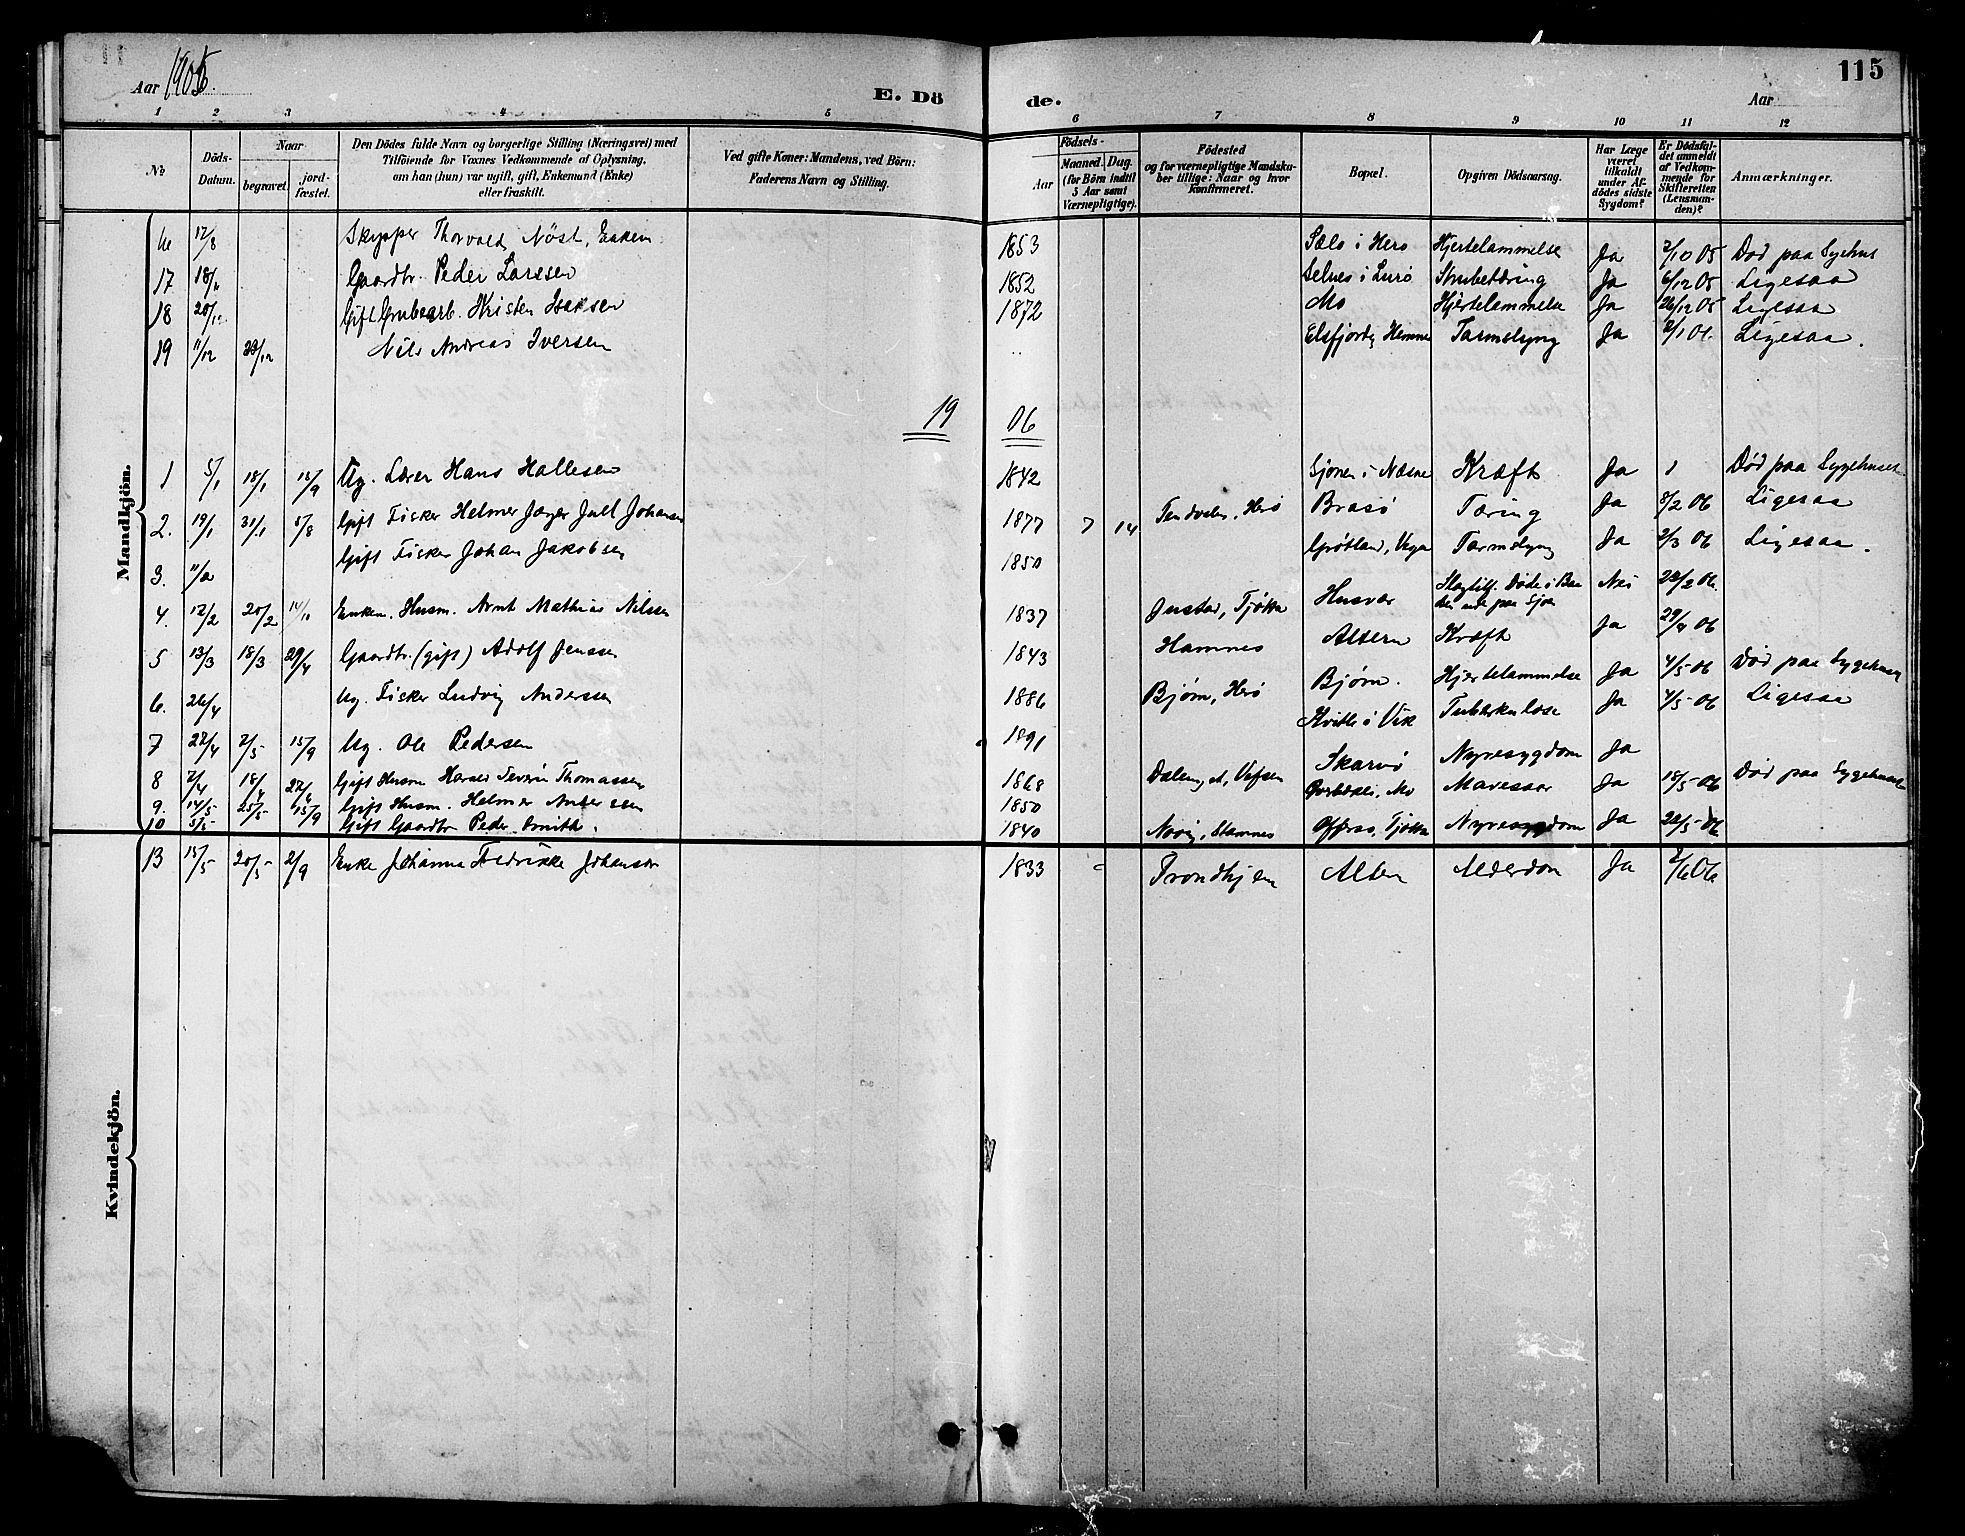 Aar 1905.
E. Dö
de.
Aar
115
1 2 3 4 5 6 7 8 9 10 11 12
No
Döds-Datum.
Naar
begravet.
jord-fæstet.
Den Dödes fulde Navn og borgerlige Stilling (Næringsvei) med
Tilföiende for Voxnes Vedkommende af Oplysning,
om han (hun) var ugift, gift, Enkemand (Enke)
eller fraskilt.
Ved gifte Koner: Mandens, ved Börn:
Faderens Navn og Stilling.
Födsels-
Aar
Maaned. Dag.
(for Börn indtil
5 Aar samt
Værnepligtige).
Födested
og for værnepligtige Mandska-
ber tillige: Naar og hvor
konfirmeret.
Bopæl.
Opgiven Dödsaarsag.
Har Læge
været
tilkaldt
under Af-
dödes sidste
Sygdom?
Er Dödsfal-
det anmeldt
af Vedkom-
mende for
Skifteretten
(Lensman-
den)?
Anmærkninger.
Mandkjön.
17/8 Skypper Thorvald Nöst, Enkem 1853 Hjertelammelse Ja 2/10 05 Död paa Sygehus
17 Gaardbr. Peder Larssen 1852 Selnes i Lurö Strubetæring Ja 6/12 05 Ligesaa
18 Gift Grubearb. Kristen Isaksen 1872 Mo Hjertelammelse Ja 26/12 05 Ligesaa
19 11/12 Nils Andreas Iversen .. Elsfjord, Hemnes Tarmslyng Ja 2/1 06. Ligesaa.
19 06
1 5/1 18/1 Ug. Lærer Hans Hallesen 1842 Sjonen i Næsne Kræft Ja 1 Död paa Sygehuset
2. 19/1 Gift Fisker Helmer Jæger Juel Johansen 1877 7 14 Herö Brasö Tæring Ja 8/2 06 Ligesaa
3. Gift Fisker Johan Jakobsen 1850 Grötland, Vega Tarmslyng Ja 2/3 06 Ligesaa.
4. 12/2 20/2 14/10 Enkem. Husm. Arnt Mathias Nilsen 1837 Tjötta Husvær Nei
5 13/3 18/3 29/4 Gaardbr. (gift) Adolf Jenssen 1843 Hamnes Altern Kræft Ja 29/4 06
6. 26/4 Ug. Fisker Ludvig Anderssen 1886 Bjørn, Herö Bjørn. Hjertelammelse Ja 4/5 06 Död paa Sygehuset
7 22/4 2/5 15/9 Ug. Ole Pedersen 1891 Vik Tuberkulose Ja 4/5 06 Ligesaa
8 7/4 18/4 Gift Husm Thomassen 1868 Vefsen Nyresygdom Ja
9. 14/5 25/5 15/9 Gift Husm. Helmer Andersen 1850 Mo Ja 18/5 06 Död paa Sygehuset
10 5/5 Gift Gaardbr Peder Smith. 1840 Stamnes Tjötta Nyresygdom Ja 22/5 06
Kvindekjön.
13 15/5 20/5 2/9 Enke Johanna Fredrikke Johanson 1833 Trondhjem Alten Alderdom Ja 2/6 06